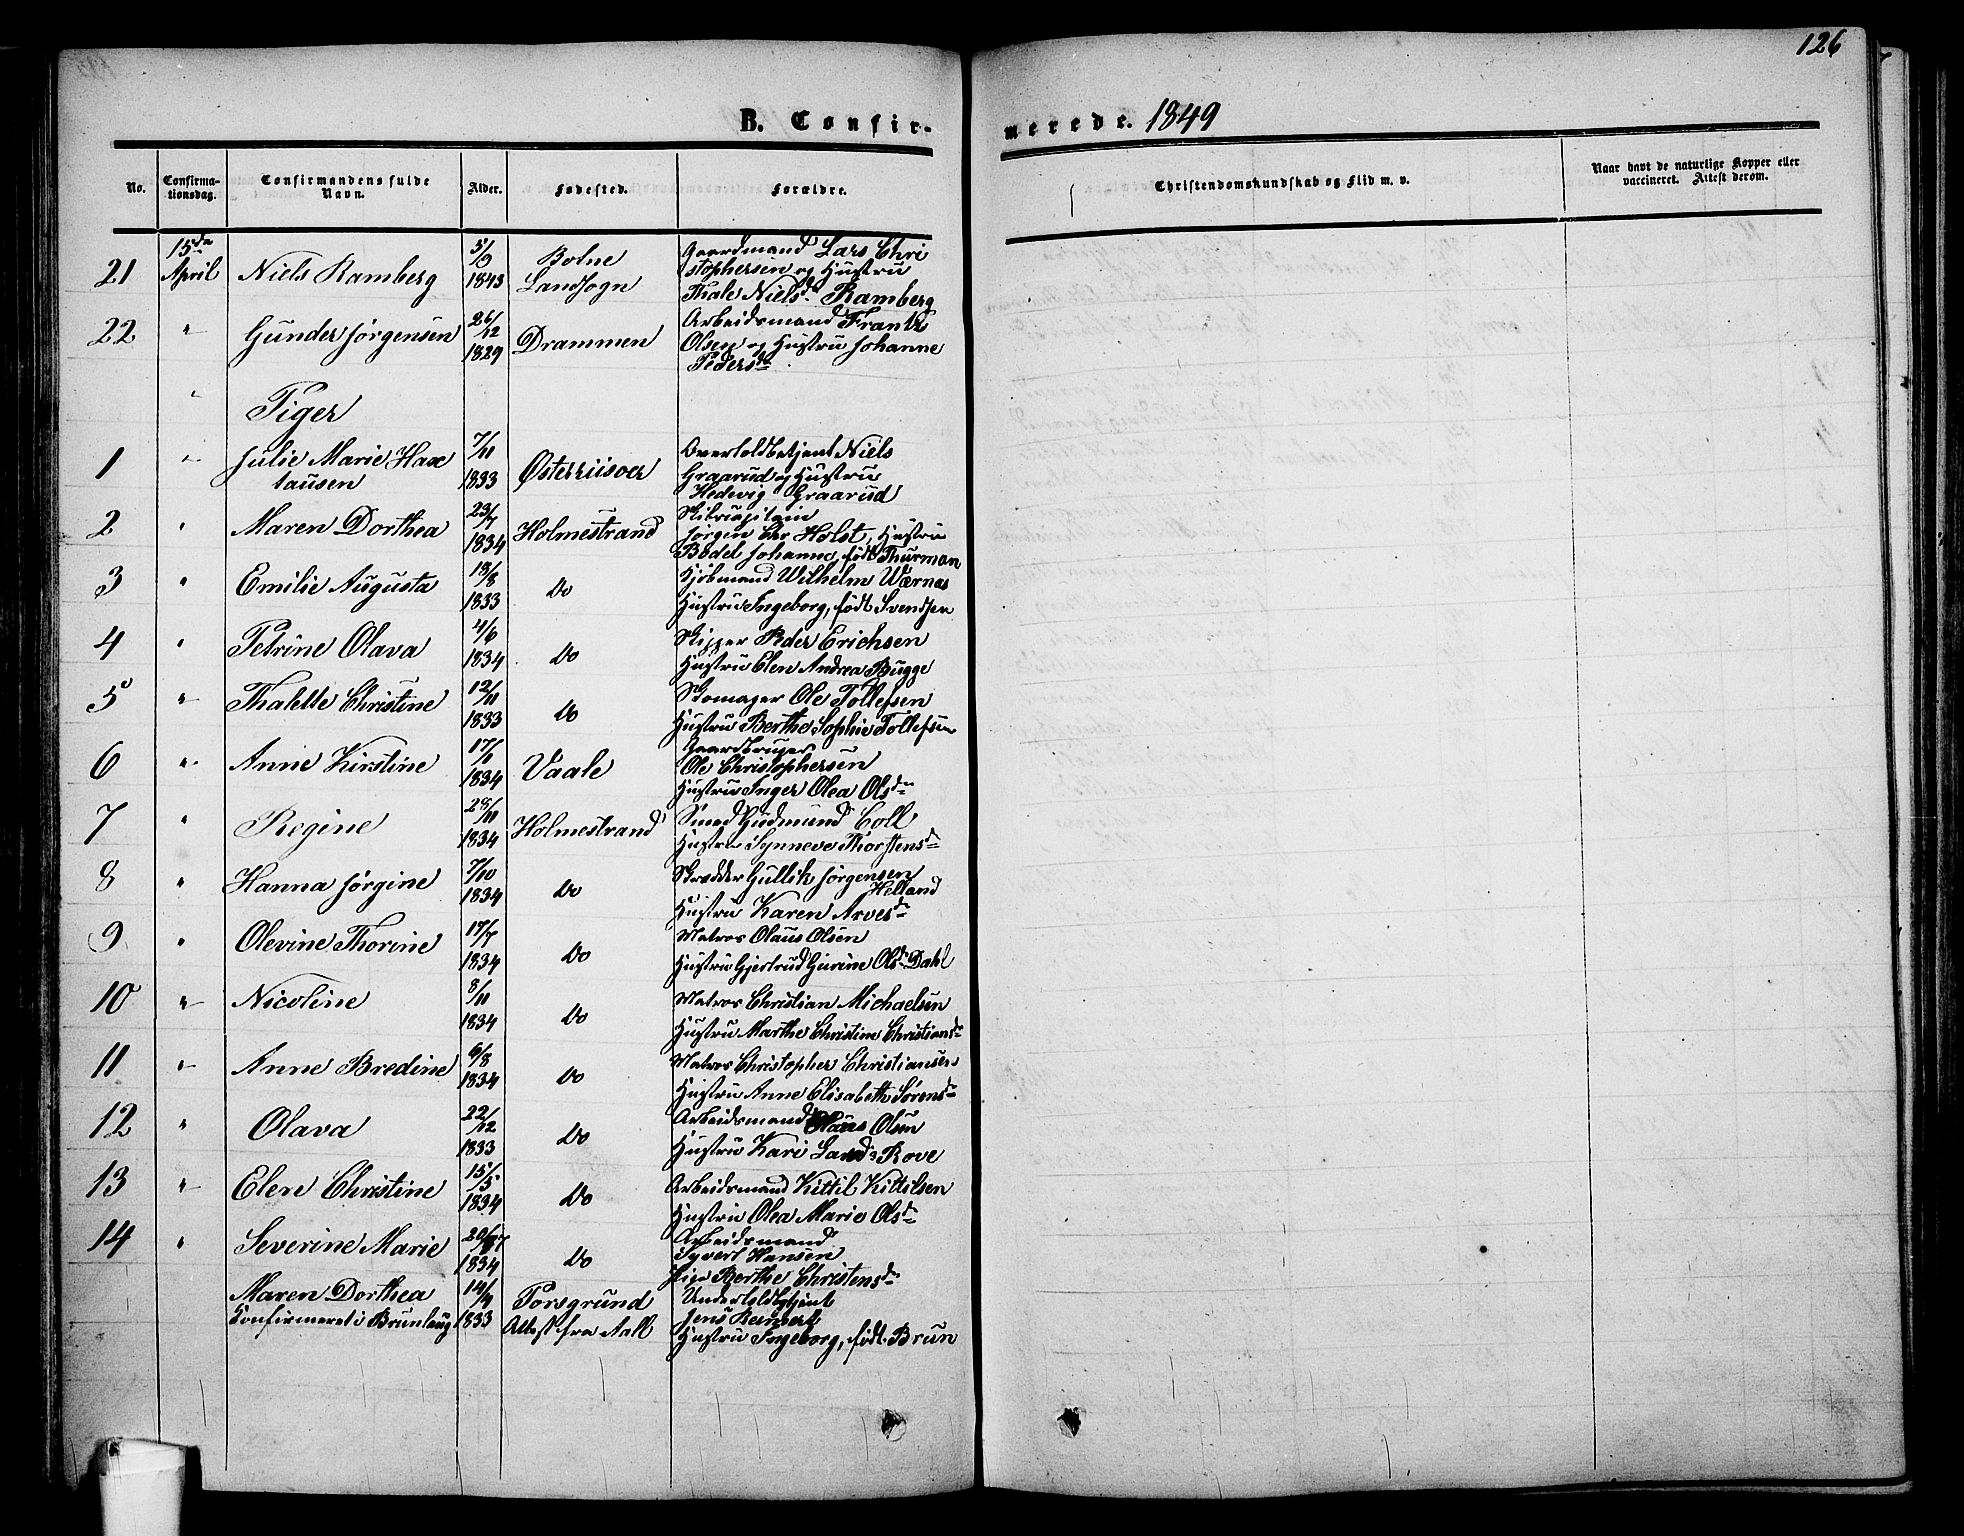 126
B. Confirmerede. 1849
No.
Confirmationsdag.
Confirmandens fulde Navn.
Alder.
Fødested.
Forældre.
Christendomskundskab og Flid m. v.
Naar havt de naturlige Kopper eller vaccineret. Attest derom.
21 15de April Niels Ramberg 5/9 1843 Botne Landsogn Gaardmand Lars Christophersen og Hustru Thale Nielsd. Ramberg
22 " Gunder Jørgensen 26/12 1829 Drammen Arbeidsmand Frantz Olsen og Hustru Johanne Pedersdr
" Piger
1 " Julie Marie Haxtausen 7/11 1833 Østerriisoer Overtoldbetjent Niels Graarud og Hustru Hedevig Graarud
2 " Maren Dorthea 23/7 1834 Holmestrand Skibscapitain Jørgen Chr Holst, Hustru Bodel Johanne, født Thurman
3 " Emilie Augusta 18/8 1833 Do Kjøbmand Wilhelm Wærnes Hustru Ingeborg, født Svendsen
4 " Petrine Olava 4/6 1834 Do Skipper Peder Erichsen Hustru Elen Andrea Bugge
5 " Thalette Christine 12/11 1833 Do Skomager Ole Tollefsen Hustru Berthe Sophie Tollefsen
6 " Anne Kirstine 17/1 1834 Vaale Gaardbruger Ole Christophersen Hustru Inger Olea Olsdr
7 " Regine 28/11 1834 Holmestrand Smed Gudmund Coll Hustru Synneve Thorstensd
8 " Hanna Jørgine 7/10 1834 Do Skrædder Gullik Jørgensen Helland Hustru Karen Arvesdr
9 " Olevine Thorine 17/7 1834 Do Matros Olaus Olsen Hustru Gjertrud Gurine Olsdr Dahl
10 " Nicoline 8/11 1834 Do Matros Christian Michaelsen Hustru Marthe Christine Christiansdr
11 " Anne Bredine 6/8 1834 Do Matros Christopher Christiansen Hustru Anne Elisabeth Sørensdr
12 " Olava 22/12 1833 Do Arbeidsmand Olaus Olsen Hustru Kari Rove
13 " Elen Christine 15/5 1834 Do Arbeidsmand Kittil Kittilsen Hustru Olea Marie Olsdr
14 " Severine Marie 1834 Do Arbeidsmand Syvert Hansen Pige Berthe Christensdr
Maren Dorthea Confirmeret i Brunlaug 14/4 1833 Porsgrund Attest fra Aall Undertoldbetjent Jens Hustru Ingeborg, født Brun